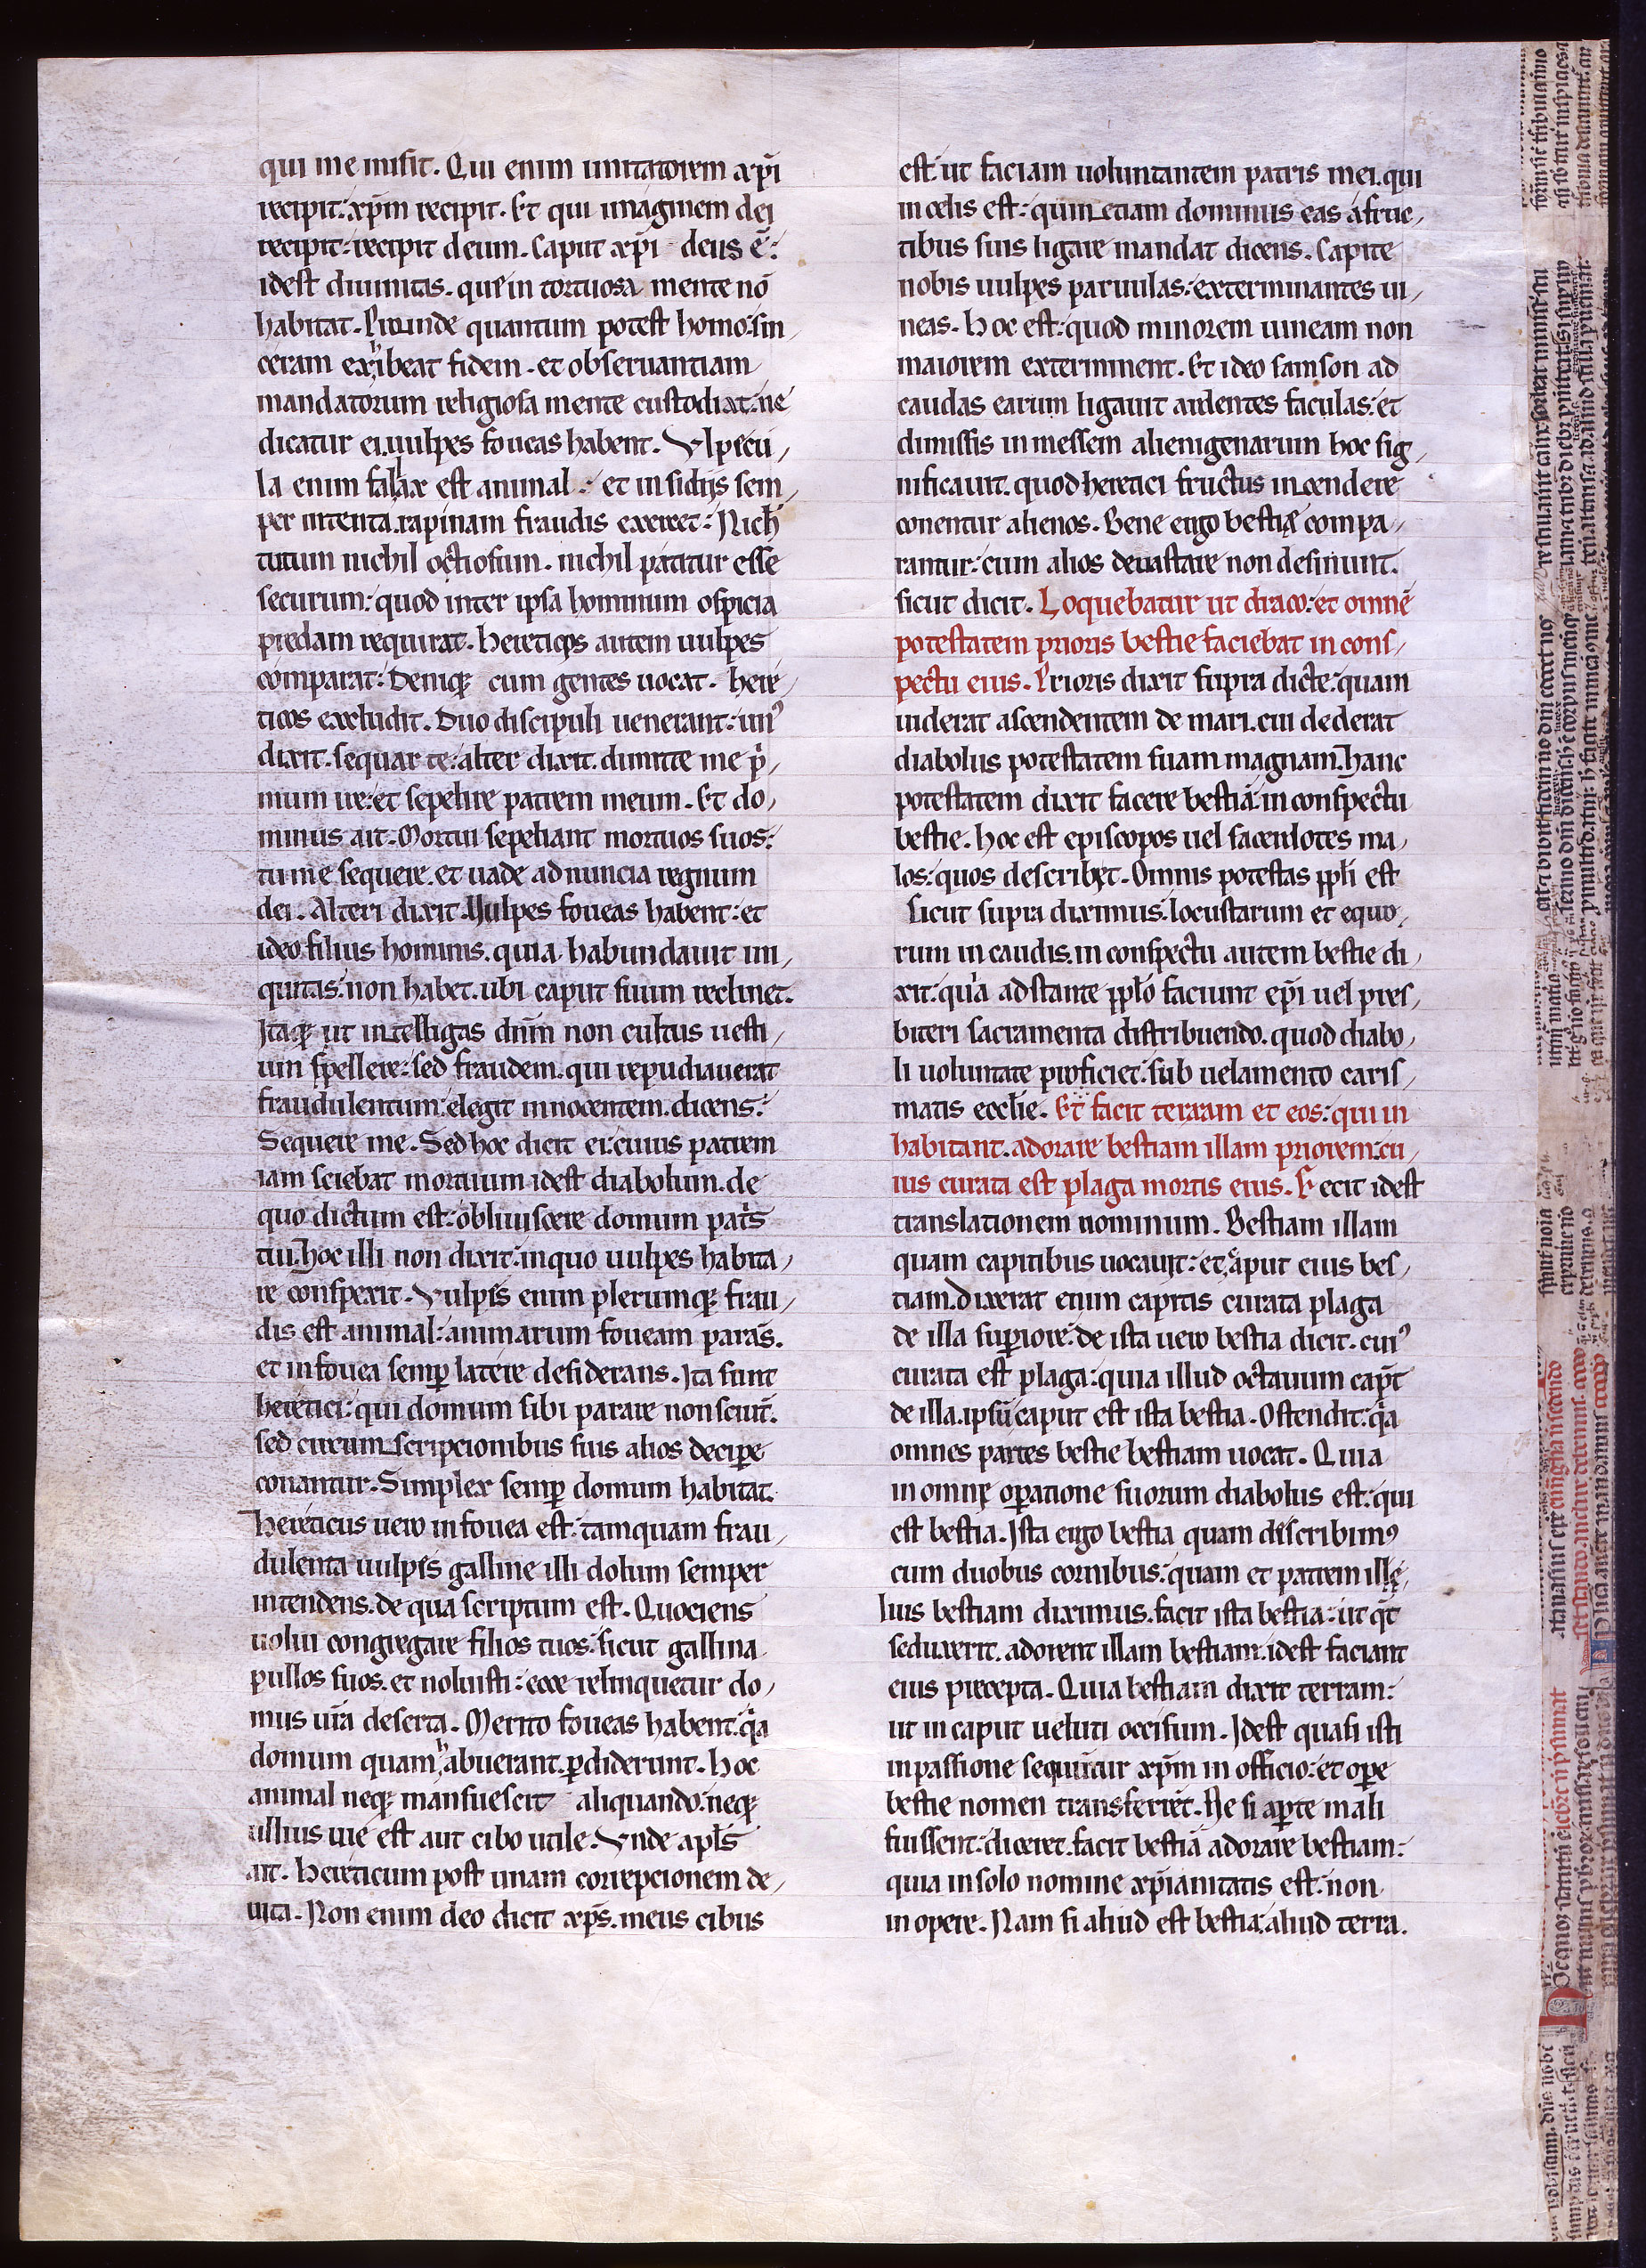 qui me misit. Qui enim imitatorem xp̄i
recipit: xp̄m recipit. Et qui imaginem dei
recipit: recipit deum. Caput xp̄i deus ē:
idest diuinitas. que in tortuosa mente nō
habitat. Proinde quantum potest homo: sin,
ceram exhibeat fidem. et obseruantiam
mandatorum religiosa mente custodiat: ne
dicatur ei. uulpes foueas habent. Vlpecu,
la enim fallax est animal: et insidijs sem,
per intenta. rapinam fraudis exercet: Nich̄
tutum nichil octiosum. nichil patitur esse
securum: quod inter ipsa hominum ospicia
predam requirat. Hereticos autem uulpes
comparat: Deniq; cum gentes uocat. here,
ticos excludit. Duo discipuli uenerant: un᾿
dixit. sequar te: alter dixit. dimitte me p̓,
mum ire: et sepelire patrem meum. Et do,
minus ait: Mortui sepeliant mortuos suos:
tu me sequere. et uade adnuncia regnum
dei. Alteri dixit. Uulpes foueas habent: et
ideo filius hominis. quia habundauit ini,
quitas: non habet. ubi caput suum reclinet.
Itaq; ut intelligas dn̄m non cultus uesti,
um spellere: sed fraudem. qui repudiauerat
fraudulentum: elegit innocentem. dicens:
Sequere me. Sed hoc dicit ei: cuius patrem
iam sciebat mortuum idest diabolum. de
quo dictum est: obliuiscere domum pat̓s
tui. Hoc illi non dixit: in quo uulpes habita,
re conspexit. Vulpis enim plerumq; frau,
dis est animal: animarum foueam paras̄.
et in fouea semp̱ latere desiderans. Ita sunt
heretici: qui domum sibi parare non sciut̄.
sed circumscripcionibus suis alios decip̱e
conantur. Simplex semp̱ domum habitat.
Hereticus uero in fouea est: tamquam frau,
dulenta uulpis galline illi dolum semper
intendens. de qua scriptum est. Quociens
uolui congregare filios tuos: sicut gallina
pullos suos. et noluisti: ecce relinquetur do,
mus ur̄a deserta. Merito foueas habent: q̓a
domum quam habuerant. p̱diderunt. Hoc
animal neq; mansuescit aliquando: neq;
ullius uie est aut cibo utile. Vnde apl̄s
ait. Hereticum post unam correpcionem de,
uita. Non enim deo dicit xp̄s. meus cibus
est: ut faciam uoluntantem patris mei. qui
in celis est: quin etiam dominus eas a fruc,
tibus suis ligare mandat dicens. Capite
nobis uulpes paruulas: exterminantes ui,
neas. Hoc est: quod minorem uineam non
maiorem exterminent. Et ideo samson ad
caudas earum ligauit ardentes faculas: et
dimissis in messem alienigenarum hoc sig,
nificauit. quod heretici fructus incendere
conentur alienos. Bene ergo bestię compa,
rantur: cum alios deuastare non desinunt.
sicut dicit. Loquebatur ut draco: et omnē
potestatem prioris bestie faciebat in cons,
pectu eius. Prioris dixit supra dicte: quam
uiderat ascendentem de mari. cui dederat
diabolus potestatem suam magnam. Hanc
potestatem dixit facere bestiā: in conspectu
bestie. Hoc est episcopos uel sacerdotes ma,
los: quos describet. Omnis potestas pp̄li est
Sicut supra diximus: locustarum et equo,
rum in caudis. in conspectu autem bestie di,
xit: quia adstante pp̄lo faciunt ep̄i uel pres,
biteri sacramenta distribuendo. quod diabo,
li uoluntate proficiet: sub uelamento caris,
matis eccl̄ie. Et facit terram et eos: qui in
habitant. adorare bestiam illam priorem: cu,
ius curata est plaga mortis eius. Fecit idest
translationem nominum. Bestiam illam
quam capitibus uocauit: et caput eius bes,
tiam. Dixerat enim capitis curata plaga
de illa sup̱iore: de ista uero bestia dicit. cui᾿
curata est plaga: quia illud octauum cap̄t
de illa. ipsū caput est ista bestia. Ostendit: q̓a
omnes partes bestie bestiam uocat. Quia
in omne op̱atione suorum diabolus est: qui
est bestia. Ista ergo bestia quam discribim᾿
cum duobus cornibus: quam et patrem ille,
luis bestiam diximus. facit ista bestia: ut q̄t
seduxerit. adorent illam bestiam: idest faciant
eius precepta. Quia bestiam dixit terram:
ut in caput ueluti occisum. Idest quasi isti
in passione sequūtur xp̄m in officio: et op̱e
bestie nomen transferret. Ne si ap̱te mali
fuissent: diceret. facit bestiā adorare bestiam:
quia in solo nomine xp̄ianitatis est: non
in opere. Nam si aliud est bestia: aliud terra.